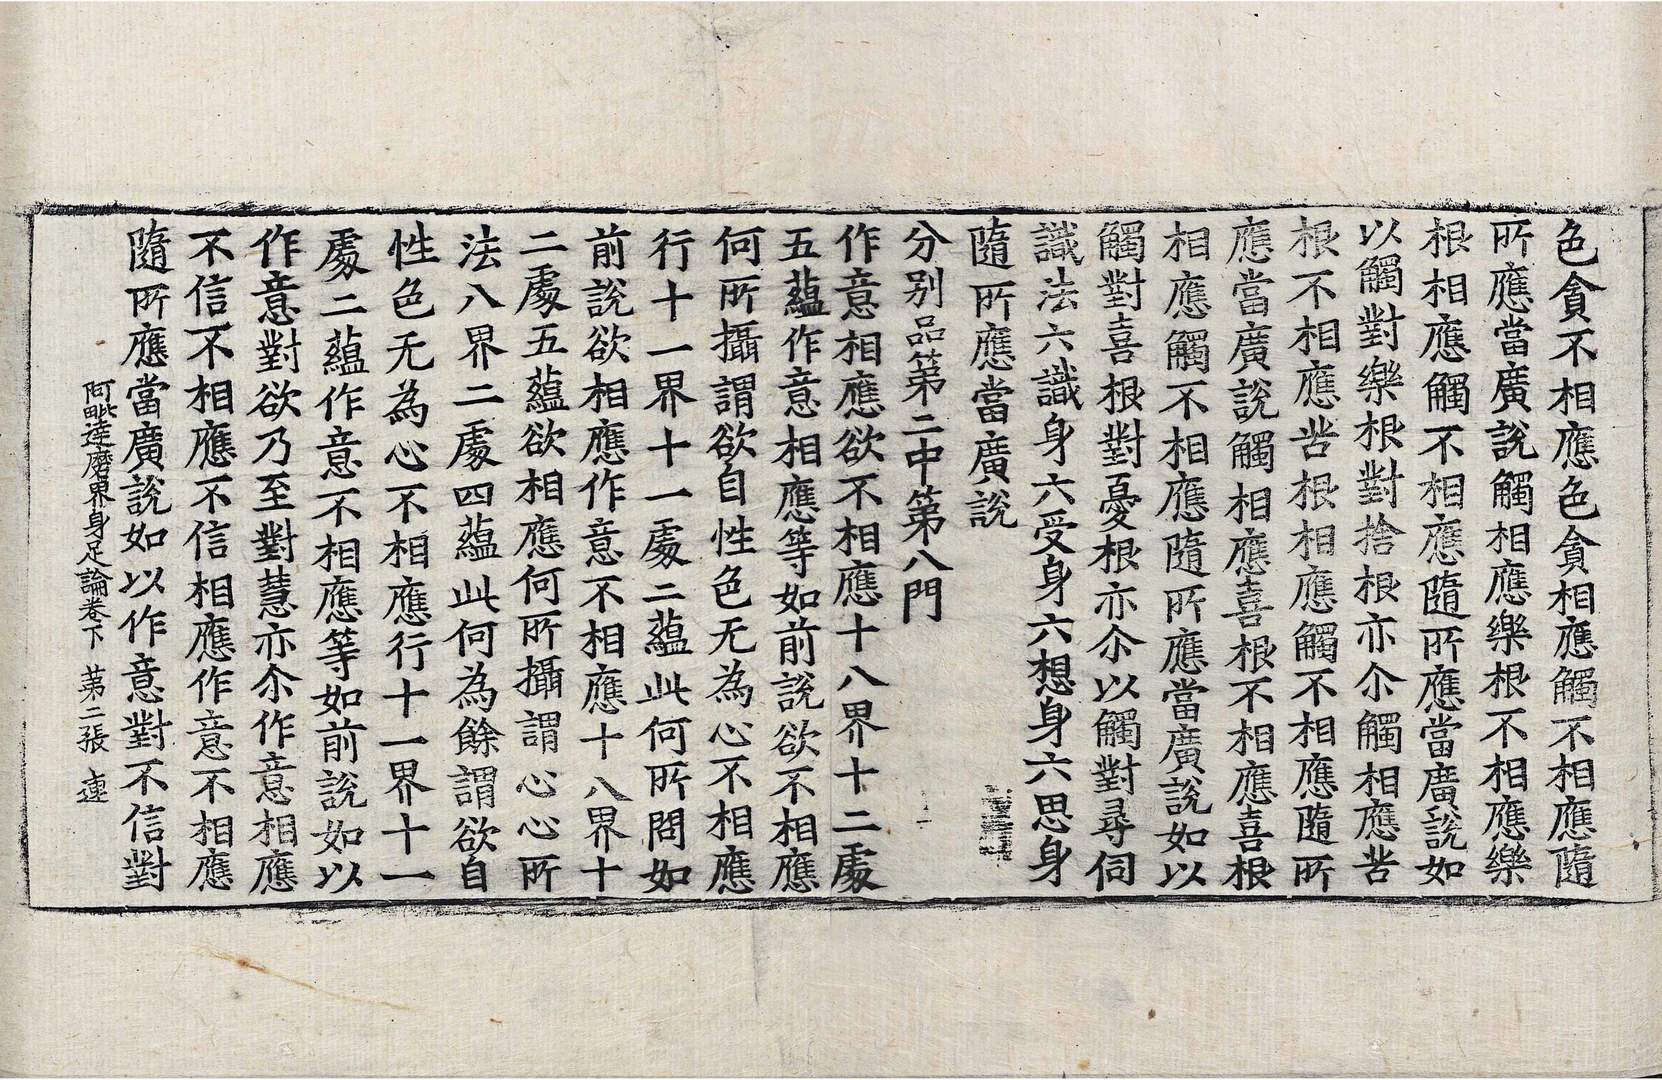 色貪不相應色貪相應觸不相應隨
所應當廣說觸相應樂根不相應樂
根相應觸不相應隨所應當廣說如
以觸對樂根對捨根亦尒觸相應苦
根不相應苦根相應觸不相應隨所
應當廣說觸相應喜根不相應喜根
相應觸不相應隨所應當廣說如以
觸對喜根對憂根亦尒以觸對尋伺
識法六識身六受身六想身六思身
隨所應當廣說
分別品第二中第八門
作意相應欲不相應十八界十二處
五蘊作意相應等如前說欲不相應
何所攝謂欲自性色无為心不相應
行十一界十一處二蘊此何所問如
前說欲相應作意不相應十八界十
二處五蘊欲相應何所攝謂心心所
法八界二處四蘊此何為餘謂欲自
性色无為心不相應行十一界十一
處二蘊作意不相應等如前說如以
作意對欲乃至對慧亦尒作意相應
不信不相應不信相應作意不相應
隨所應當廣說如以作意對不信對
阿毗達磨界身足論卷下 第二張 連